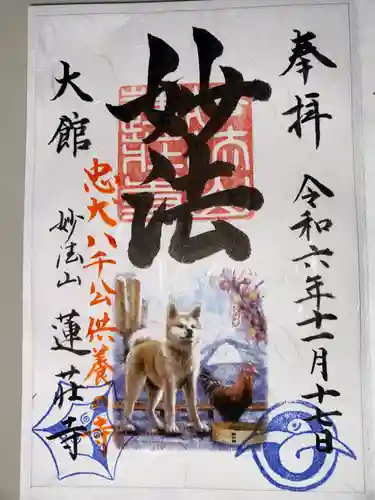 奉拝
令和六年十一月十七日
妙法
大館
忠犬ハチ公供養の寺
妙法山
蓮荘寺